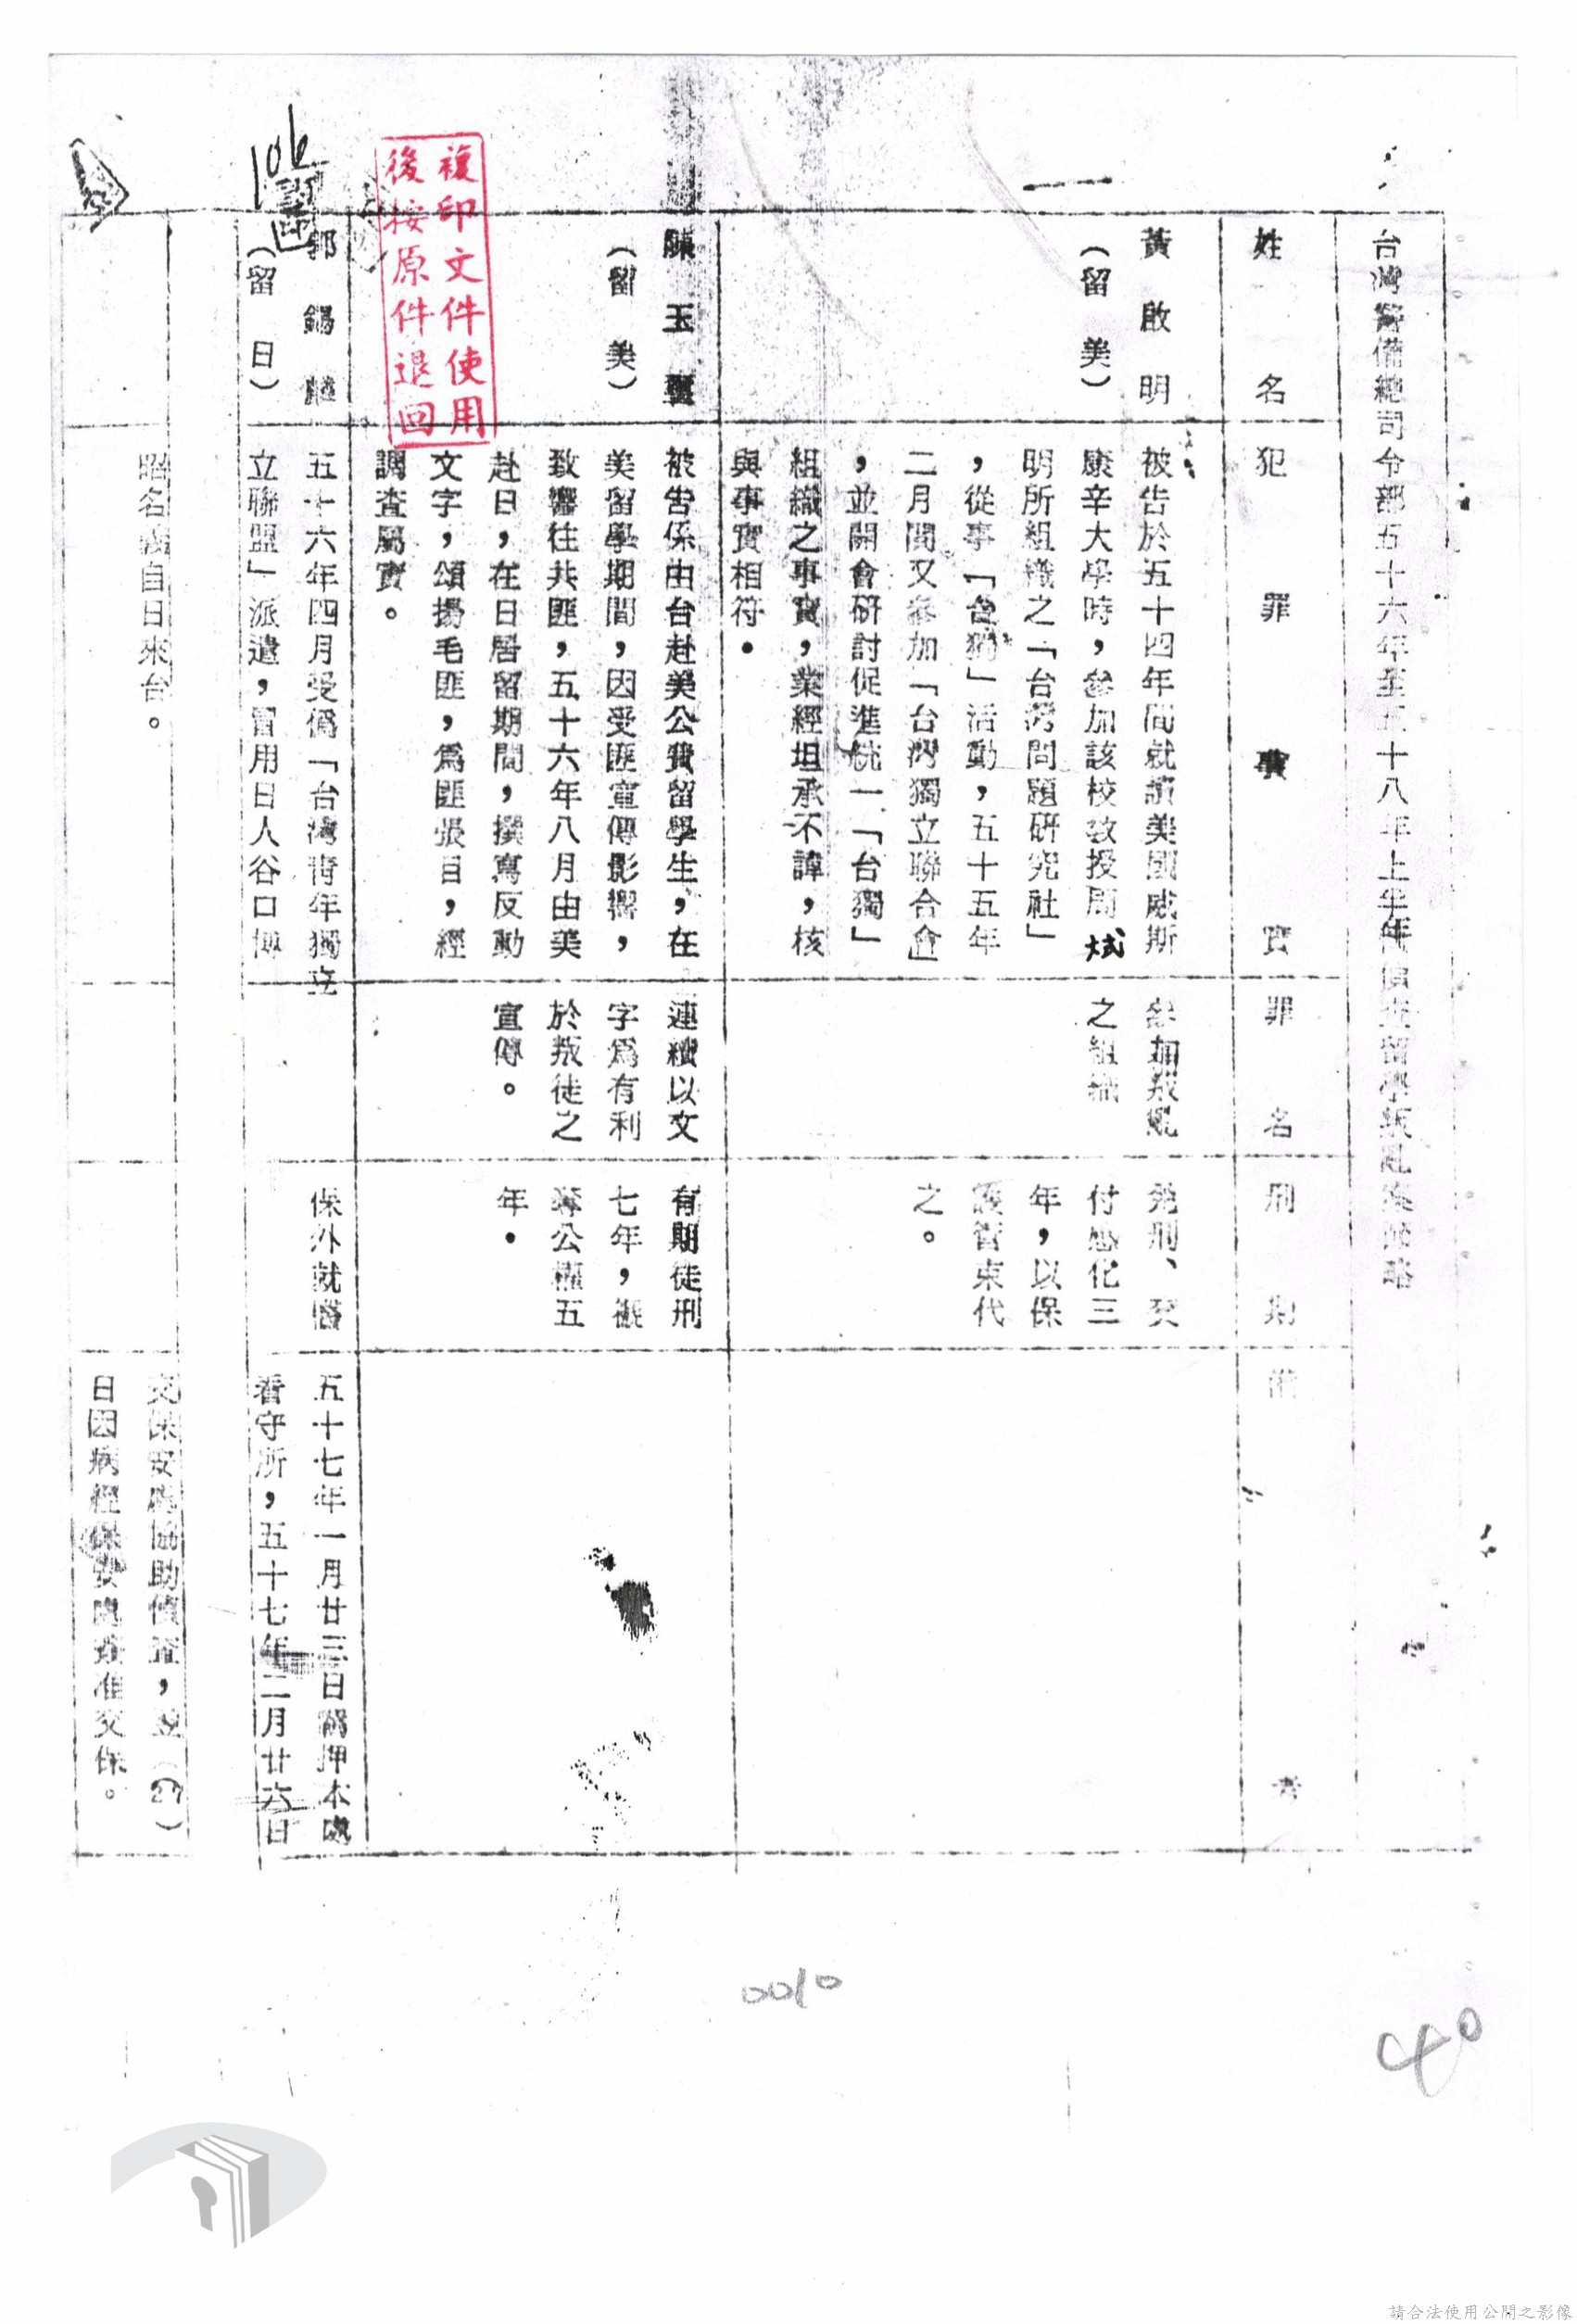 台灣警備總司令部五十六年至五十八年上半年偵查留學叛亂案件略
姓名
犯罪事實
罪名
刑期
備考
黃啟明
(留美)
被告於五十四年間就讀美國威斯
康辛大學時,參加該校教授周烒
明所組織之「台灣問題研究社」
,從事「台獨」活動,五十五年
二月間又參加「台灣獨立聯合會」
,並開會研討促進統一「台獨」
組織之事實,業經坦承不諱,核
與事實相符.
參加叛亂
之組織
免刑、交
付感化三
年,以保
護管束代
之。
陳玉璽
(留美)
被告係由台赴美公費留學生,在
美留學期間,因受匪宣傳影響,
致響往共匪,五十六年八月由美
赴日,在日居留期間,撰寫反動
文字,頌揚毛匪,為匪張目,經
調查屬實。
連續以文
字為有利
於叛徒之
宣傳。
有期徒刑
七年,褫
奪公權五
年.
郭錫
(留日)
五十六年四月受偽「台灣青年獨立
立聯盟」派遣,冒用日人谷口博
昭名義自日來台。
保外就醫
五十七年一月廿三日羈押本處
看守所,五十七年二月廿六日
交保安處協助偵查,並(27)
日因病經保安處簽准交保。
複印文件使用
後按原件退回
106
0010
40
請合法使用公開之影像